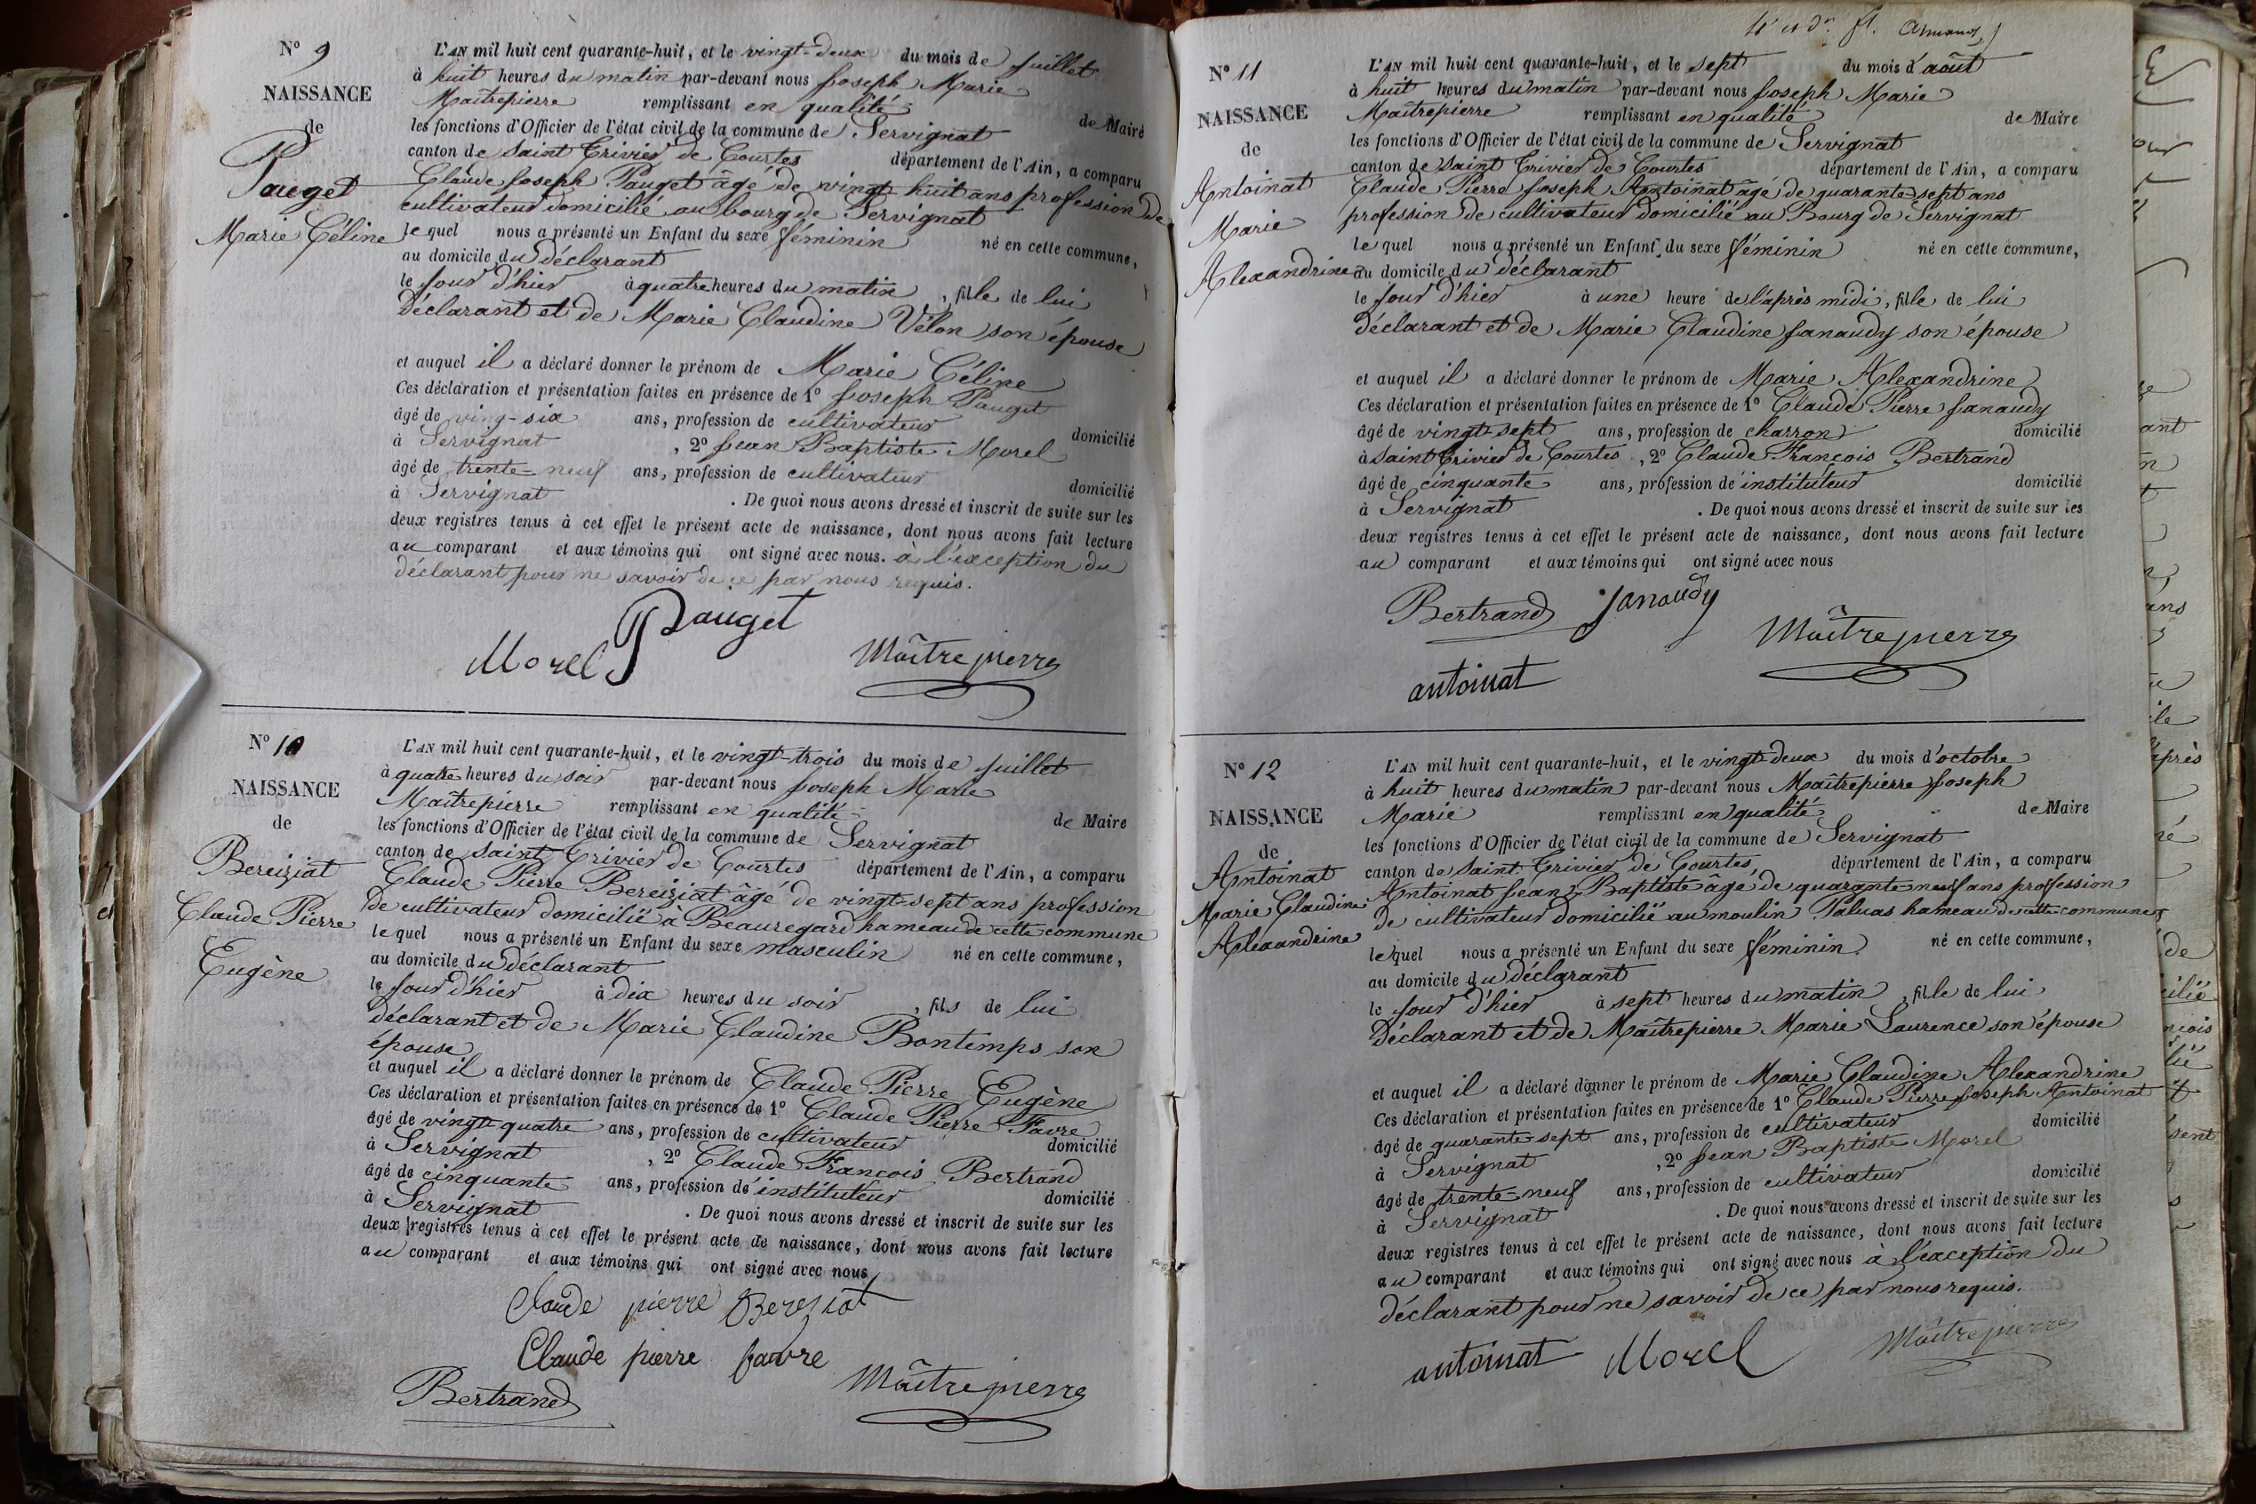 N° 9
NAISSANCE
de
Pauget
Marie Céline
L'AN mil huit cent quarante-huit, et le vingt-deux du mois de juillet
à huit heures du matin par-devant nous Joseph Marie
Maîtrepierre remplissant en qualité de Maire
les fonctions d'Officier de l'état civil de la commune de Servignat
canton de Saint Trivier de Courtes département de l'Ain, a comparu
Claude Joseph Pauget âgé de vingt huit ans profession de
cultivateur domicilié au bourg de Servignat
lequel nous a présenté un Enfant du sexe féminin né en cette commune,
au domicile du déclarant
le jour d'hier à quatre heures du matin, fille de lui
déclarant et de Marie Claudine Vélon son épouse
et auquel il a déclaré donner le prénom de Marie Céline
Ces déclaration et présentation faites en présence de 1° Joseph Pauget
âgé de ving-six ans, profession de cultivateur domicilié
à Servignat, 2° Jean Baptiste Morel
âgé de trente-neuf ans, profession de cultivateur domicilié
à Servignat. De quoi nous avons dressé et inscrit de suite sur les
deux registres tenus à cet effet le présent acte de naissance, dont nous avons fait lecture
au comparant et aux témoins qui ont signé avec nous. à l'exception du
déclarant pour ne savoir de ce par nous requis.
Pauget
Morel Maîtrepierre
N° 10
NAISSANCE
de
Bereiziat
Claude Pierre
Eugène
L'AN mil huit cent quarante-huit, et le vingt-trois du mois de juillet
à quatre heures du soir par-devant nous Joseph Marie
Maîtrepierre remplissant en qualité de Maire
les fonctions d'Officier de l'état civil de la commune de Servignat
canton de Saint Trivier de Courtes département de l'Ain, a comparu
Claude Pierre Bereiziat âgé de vingt-sept ans profession
de cultivateur domicilié à Beauregard hameau de cette commune
lequel nous a présenté un Enfant du sexe masculin né en cette commune,
au domicile du déclarant
le jour d'hier à dix heures du soir, fils de lui
déclarant et de Marie Claudine Bontemps son
épouse
et auquel il a déclaré donner le prénom de Claude Pierre Eugène
Ces déclaration et présentation faites en présence de 1° Claude Pierre Favre
âgé de vingt-quatre ans, profession de cultivateur domicilié
à Servignat, 2° Claude François Bertrand
âgé de cinquante ans, profession de instituteur domicilié
à Servignat. De quoi nous avons dressé et inscrit de suite sur les
deux registres tenus à cet effet le présent acte de naissance, dont nous avons fait lecture
au comparant et aux témoins qui ont signé avec nous
Claude pierre Bereziat
Claude pierre favre
Bertrand Maîtrepierre
N° 11
NAISSANCE
de
Antoinat
Marie
Alexandrine
L'AN mil huit cent quarante-huit, et le sept du mois d'août
à huit heures du matin par-devant nous Joseph Marie
Maîtrepierre remplissant en qualité de Maire
les fonctions d'Officier de l'état civil de la commune de Servignat
canton de Saint Trivier de Courtes département de l'Ain, a comparu
Claude Pierre Joseph Antoinat âgé de quarante-sept ans
profession de cultivateur domicilié au Bourg de Servignat
lequel nous a présenté un Enfant du sexe féminin né en cette commune,
au domicile du déclarant
le jour d'hier à une heure de l'après midi, fille de lui
déclarant et de Marie Claudine Janaudy son épouse
et auquel il a déclaré donner le prénom de Marie Alexandrine
Ces déclaration et présentation faites en présence de 1° Claude Pierre Janaudy
âgé de vingt-sept ans, profession de charron domicilié
à Saint Trivier de Courtes, 2° Claude François Bertrand
âgé de cinquante ans, profession de instituteur domicilié
à Servignat. De quoi nous avons dressé et inscrit de suite sur les
deux registres tenus à cet effet le présent acte de naissance, dont nous avons fait lecture
au comparant et aux témoins qui ont signé avec nous
Bertrand Janaudy
Maîtrepierre
antoinat
N° 12
NAISSANCE
de
Antoinat
Marie Claudine
Alexandrine
L'AN mil huit cent quarante-huit, et le vingt-deux du mois d'octobre
à huit heures du matin par-devant nous Maîtrepierre Joseph
Marie remplissant en qualité de Maire
les fonctions d'Officier de l'état civil de la commune de Servignat
canton de Saint Trivier de Courtes département de l'Ain, a comparu
Antoinat Jean-Baptiste âgé de quarante neuf ans profession
de cultivateur domicilié au moulin Paluas hameau de cette commune
lequel nous a présenté un Enfant du sexe féminin né en cette commune,
au domicile du déclarant
le jour d'hier à sept heures du matin, fille de lui
déclarant et de Maîtrepierre Marie Laurence son épouse
et auquel il a déclaré donner le prénom de Marie Claudine Alexandrine
Ces déclaration et présentation faites en présence de 1° Claude Pierre Joseph Antoinat
âgé de quarante-sept ans, profession de cultivateur domicilié
à Servignat, 2° Jean Baptiste Morel
âgé de trente-neuf ans, profession de cultivateur domicilié
à Servignat. De quoi nous avons dressé et inscrit de suite sur les
deux registres tenus à cet effet le présent acte de naissance, dont nous avons fait lecture
au comparant et aux témoins qui ont signé avec nous à l'exception du
déclarant pour ne savoir de ce par nous requis.
antoinat Morel Maîtrepierre